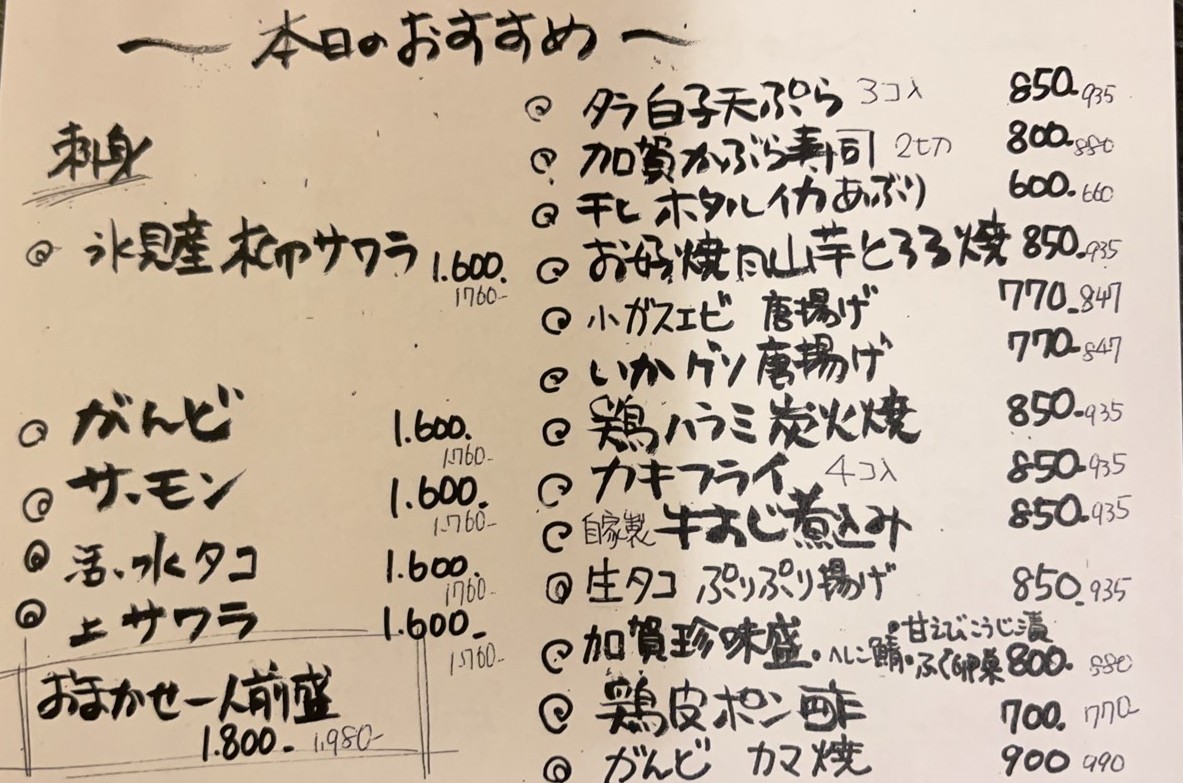 〜 本日のおすすめ 〜
刺身
氷見産 柳サワラ 1.600.
1760-
がんど 1.600.
1.760-
サーモン 1.600-
1.760-
活水タコ 1.600.
1760-
上サワラ 1.600-
1.760-
おまかせ一人前盛
1.800- 1,980-
タラ白子天ぷら 3コ入 850-935
加賀かぶら寿司 2切 800-880
干しホタルイカあぶり 600-660
お好焼風山芋とろろ焼 850-935
小ガスエビ 唐揚げ 770-847
いかゲソ唐揚げ 770-847
鶏ハラミ炭火焼 850-935
カキフライ 4コ入 850-935
自家製 牛すじ煮込み 850-935
生タコ ぷりぷり揚げ 850-935
加賀珍味盛・へしこ鯖・甘えびこうじ漬・ふぐ卵巣 800- 880
鶏皮ポン酢 700. 770-
がんど カマ焼 900 990